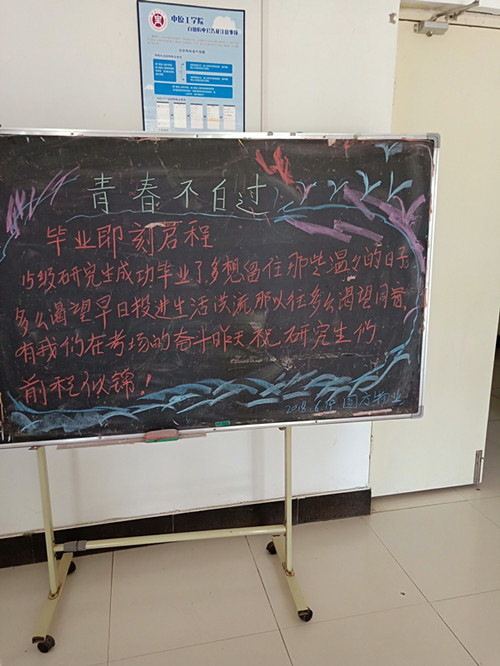 中原工学院
青春不白过
毕业即刻启程
15级研究生成功毕业了,多想留住那些温么的日子,
多么渴望早日投进生活洪流那以往多么渴望同前
有我们在考场的奋斗昨天祝研究生们
前程似锦!
2018.6.15 圆方物业